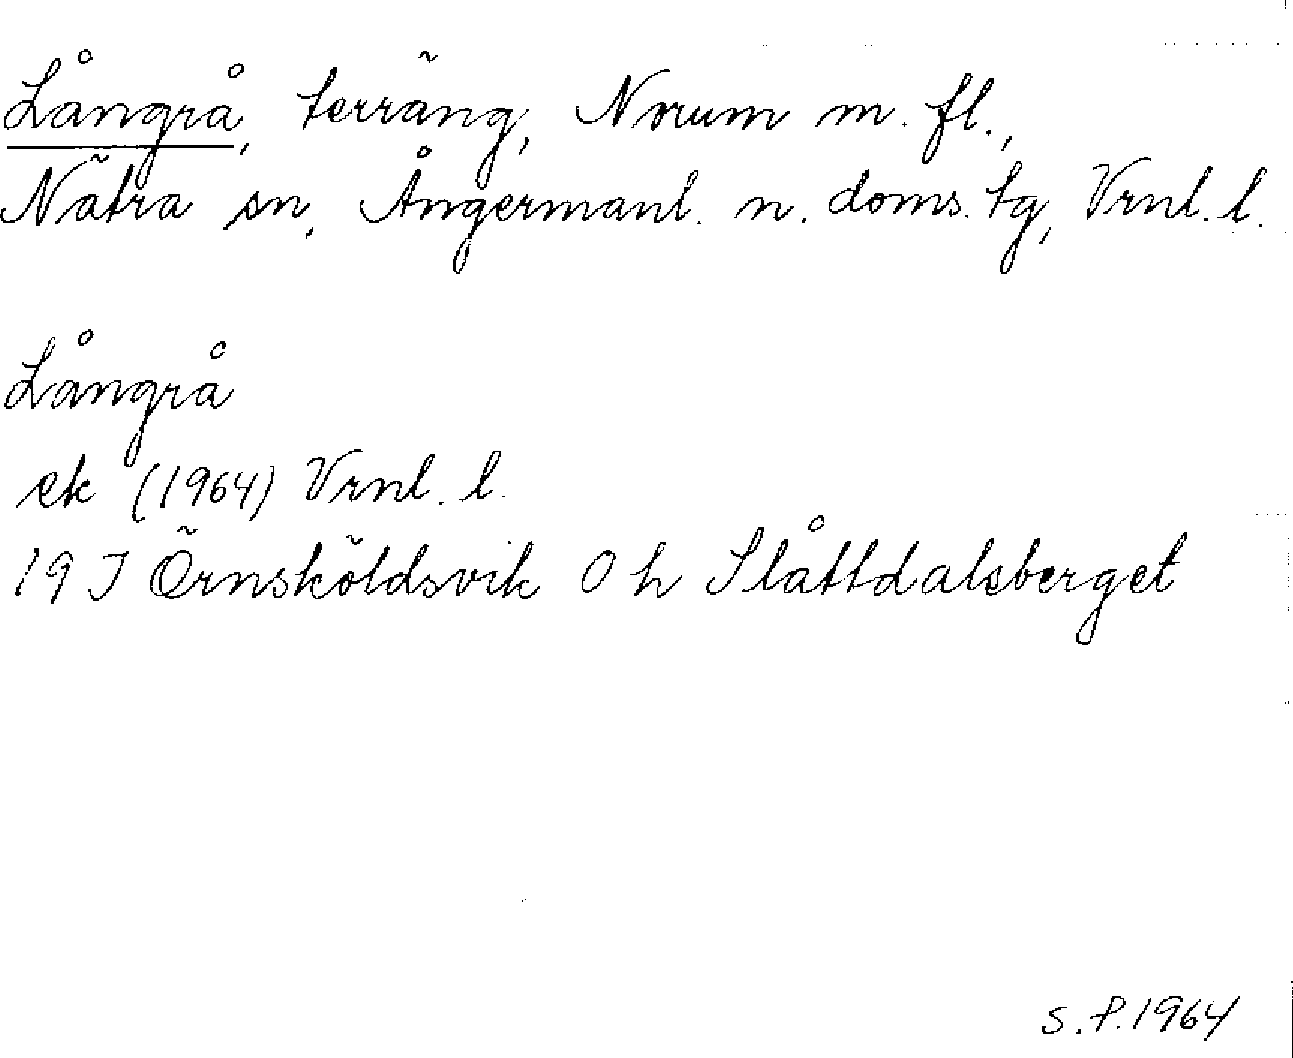 Långrå, terräng, Norum m. fl.,
Nätra sn, Ångermanl. n. doms. tg, Vrnl. l.
Långrå
ek (1964) Vrnl. l.
19 J Örnsköldsvik 0 h Slåttdalsberget
S.P. 1964